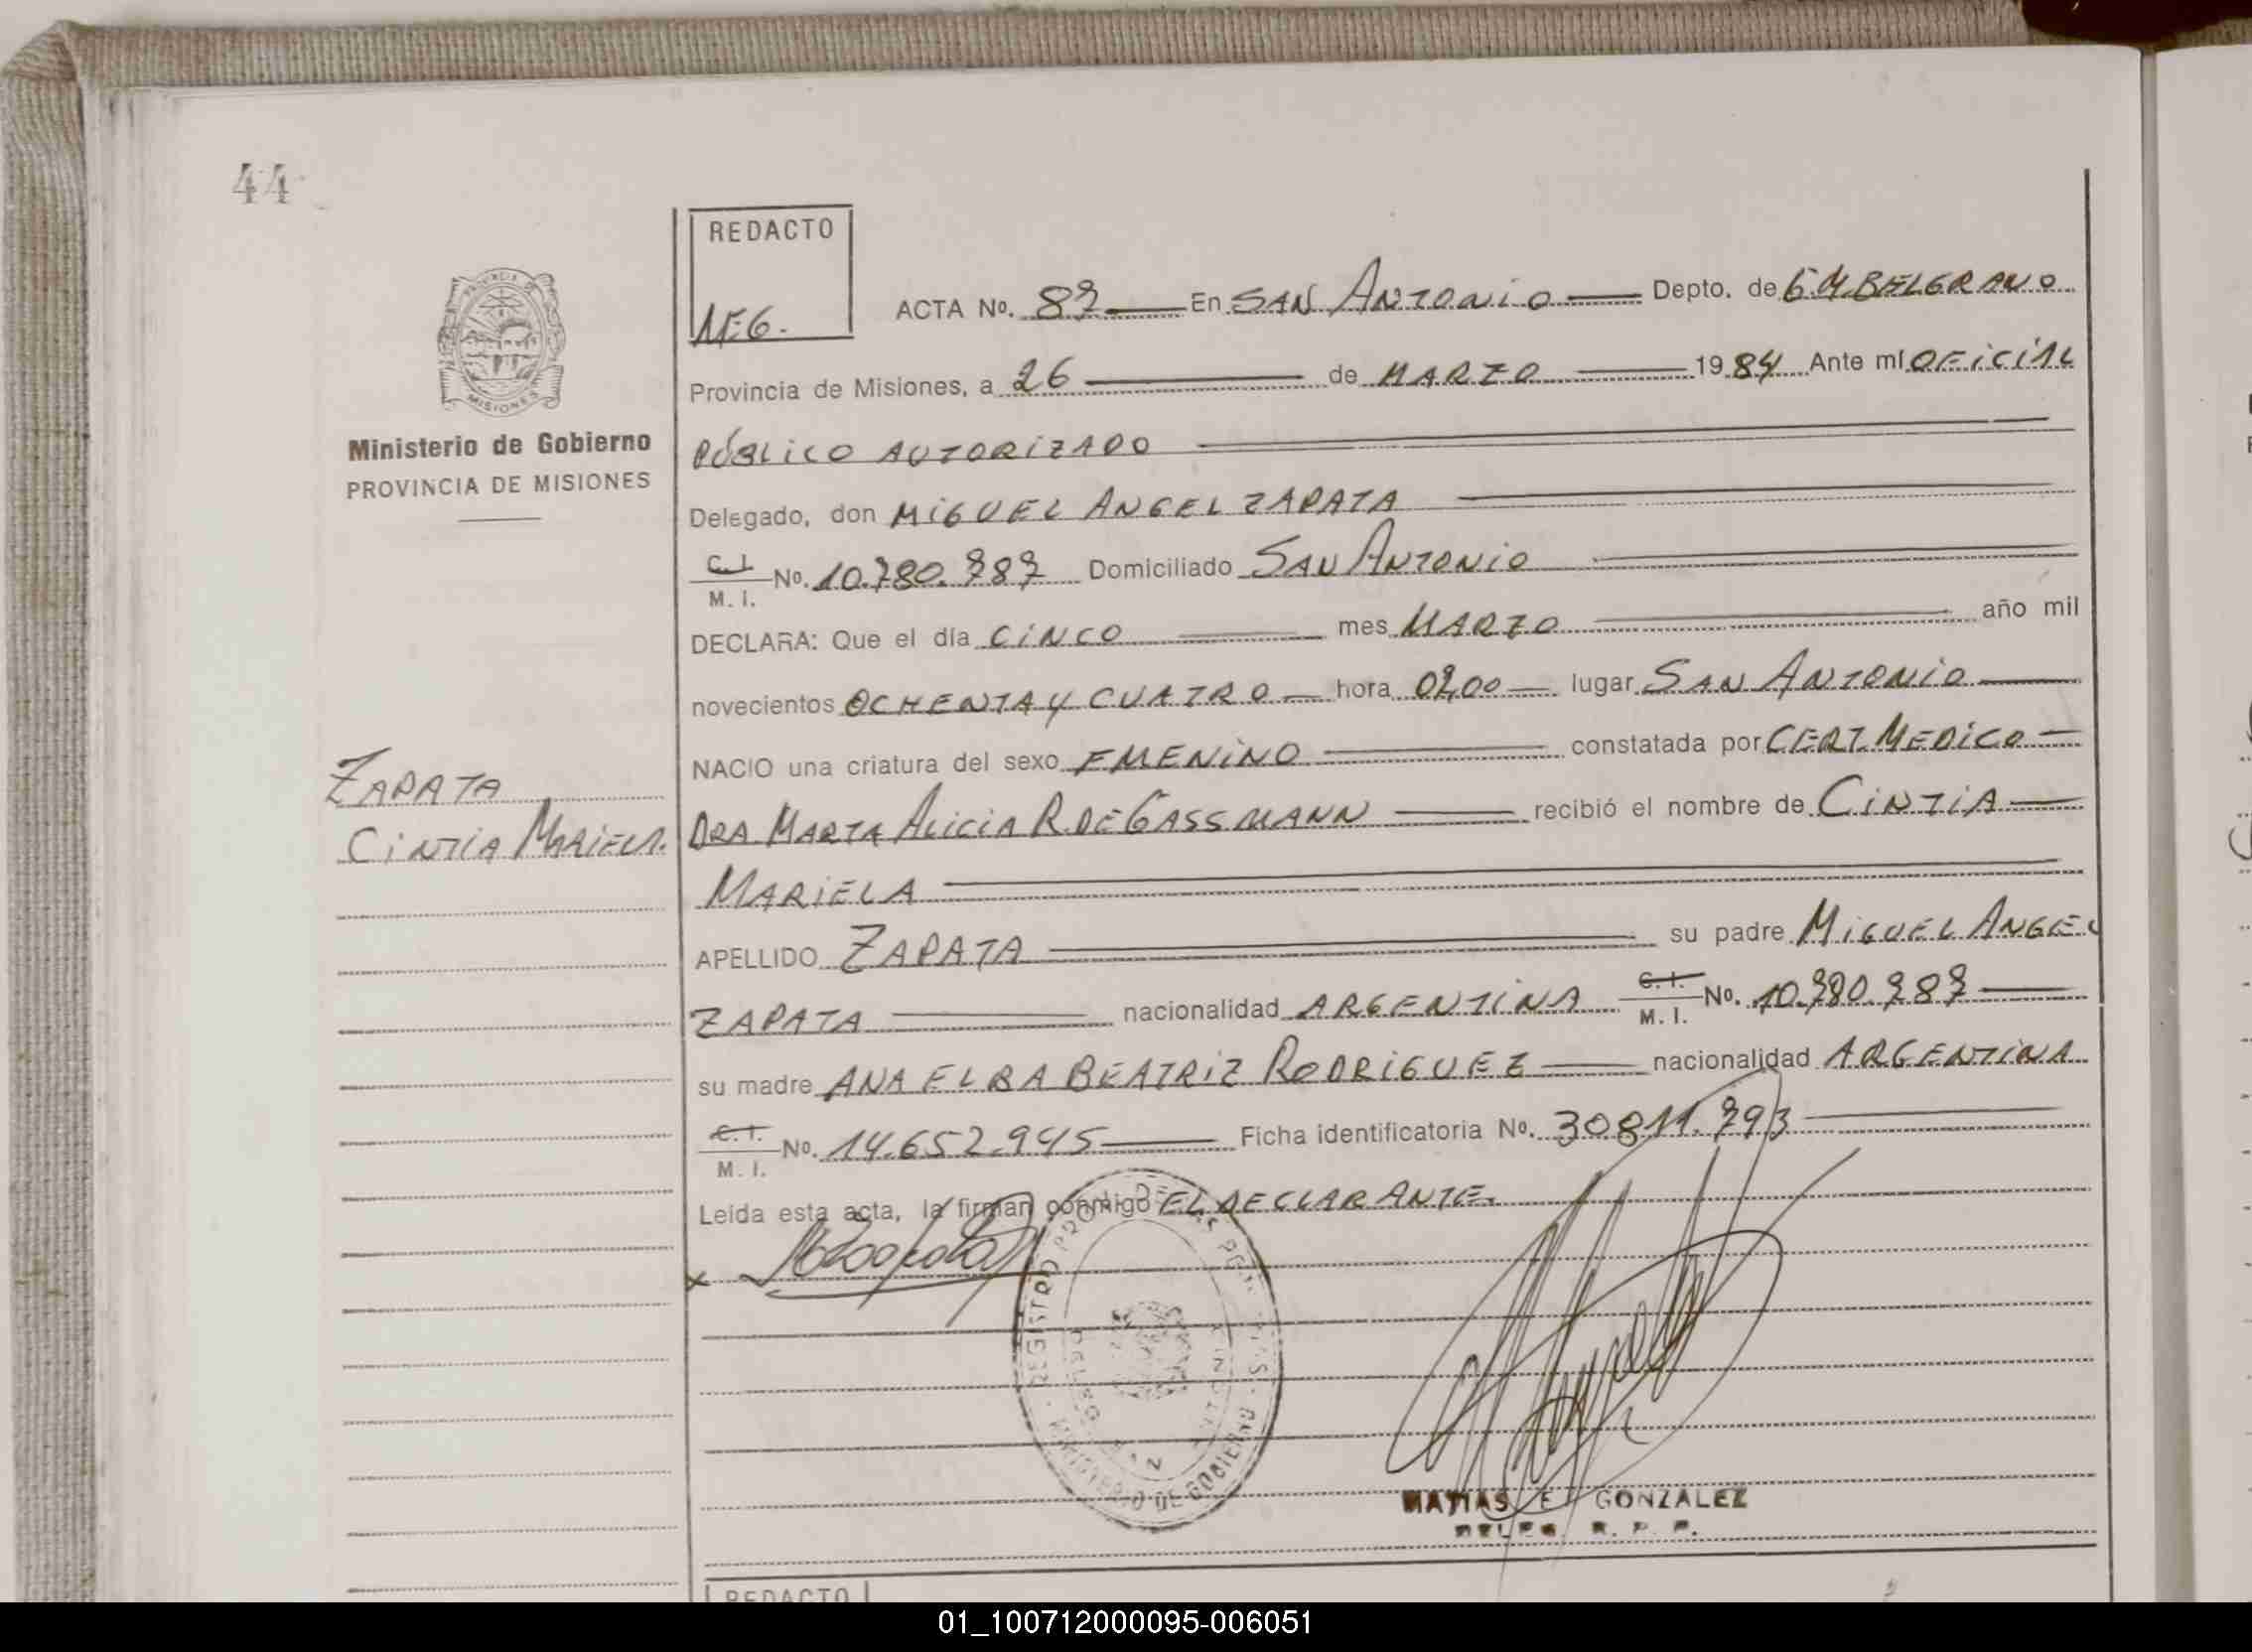 44
REDACTO
M.E.G.
ACTA No. 87 En SAN ANTONIO Depto. de G.M.BELGRANO
Provincia de Misiones, a 26 de MARZO 1984 Ante mí OFICIAL
PÚBLICO AUTORIZADO
Delegado, don MIGUEL ANGEL ZAPATA
C.I. M.I. No. 10.780.787 Domiciliado SAN ANTONIO
DECLARA: Que el día CINCO mes MARZO año mil
novecientos OCHENTA Y CUATRO hora 07,00 lugar SAN ANTONIO
NACIO una criatura del sexo FMENINO constatada por CERT. MEDICO
DRA. MARTA ALICIA R. DE GASSMANN recibió el nombre de CINTIA
MARIELA
APELLIDO ZAPATA su padre MIGUEL ANGEL
ZAPATA nacionalidad ARGENTINA C.I. M.I. No. 10.780.787
su madre ANA ELBA BEATRIZ RODRIGUEZ nacionalidad ARGENTINA
C.I. M.I. No. 14.652.945 Ficha identificatoria No. 30811.793
Leída esta acta, la firman conmigo EL DECLARANTE.
MATIAS E. GONZALEZ
DELEG. R. P. P.
PROVINCIA DE
MISIONES
Ministerio de Gobierno
PROVINCIA DE MISIONES
ZAPATA
CINTIA MARIELA.
REGISTRO
MINISTERIO DE GOBIERNO
REDACTO
01_100712000095-006051